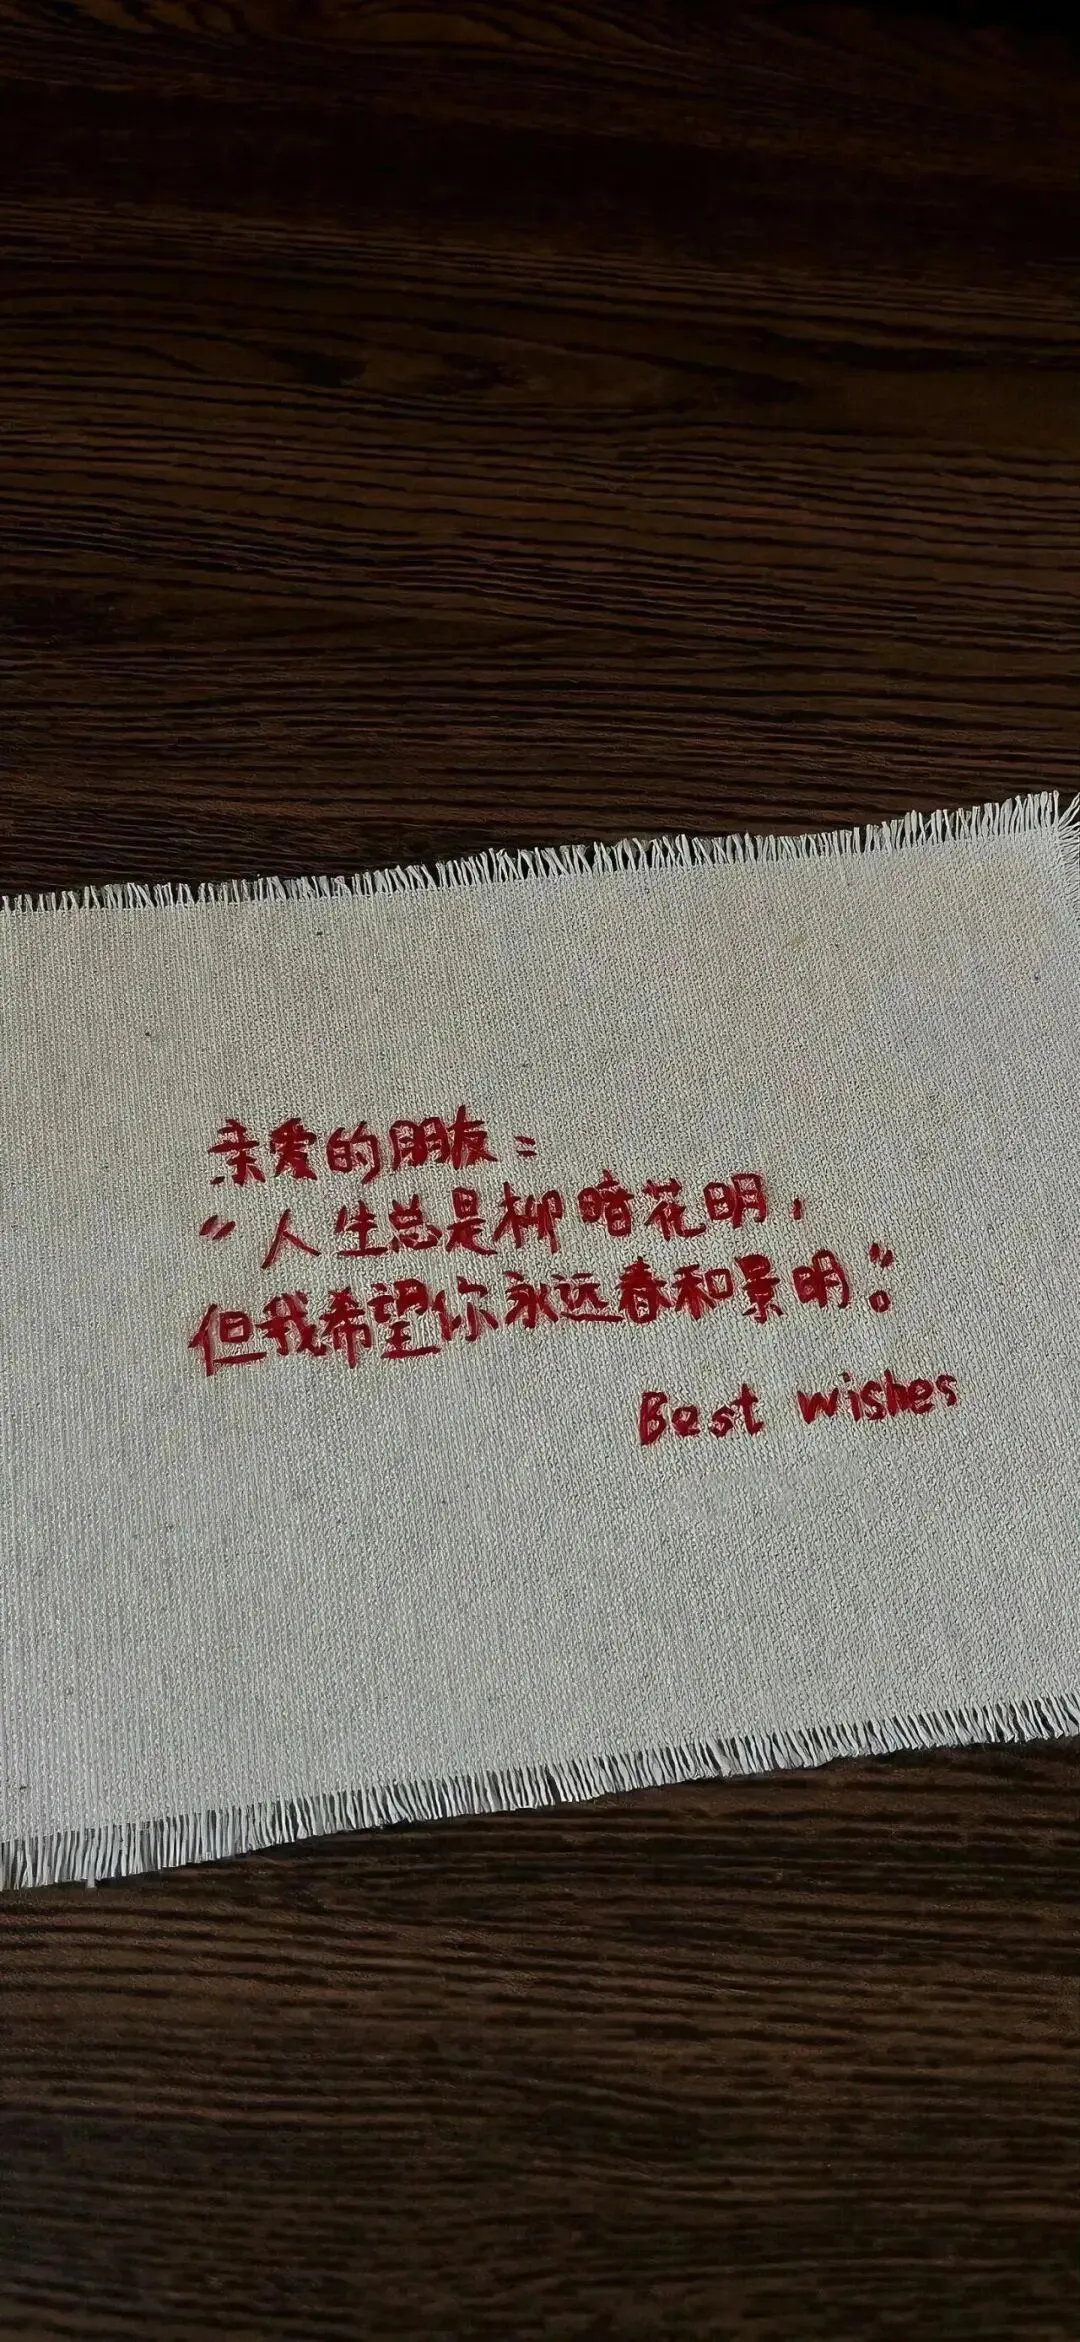 亲爱的朋友：
“人生总是柳暗花明，
但我希望你永远春和景明。”
Best wishes